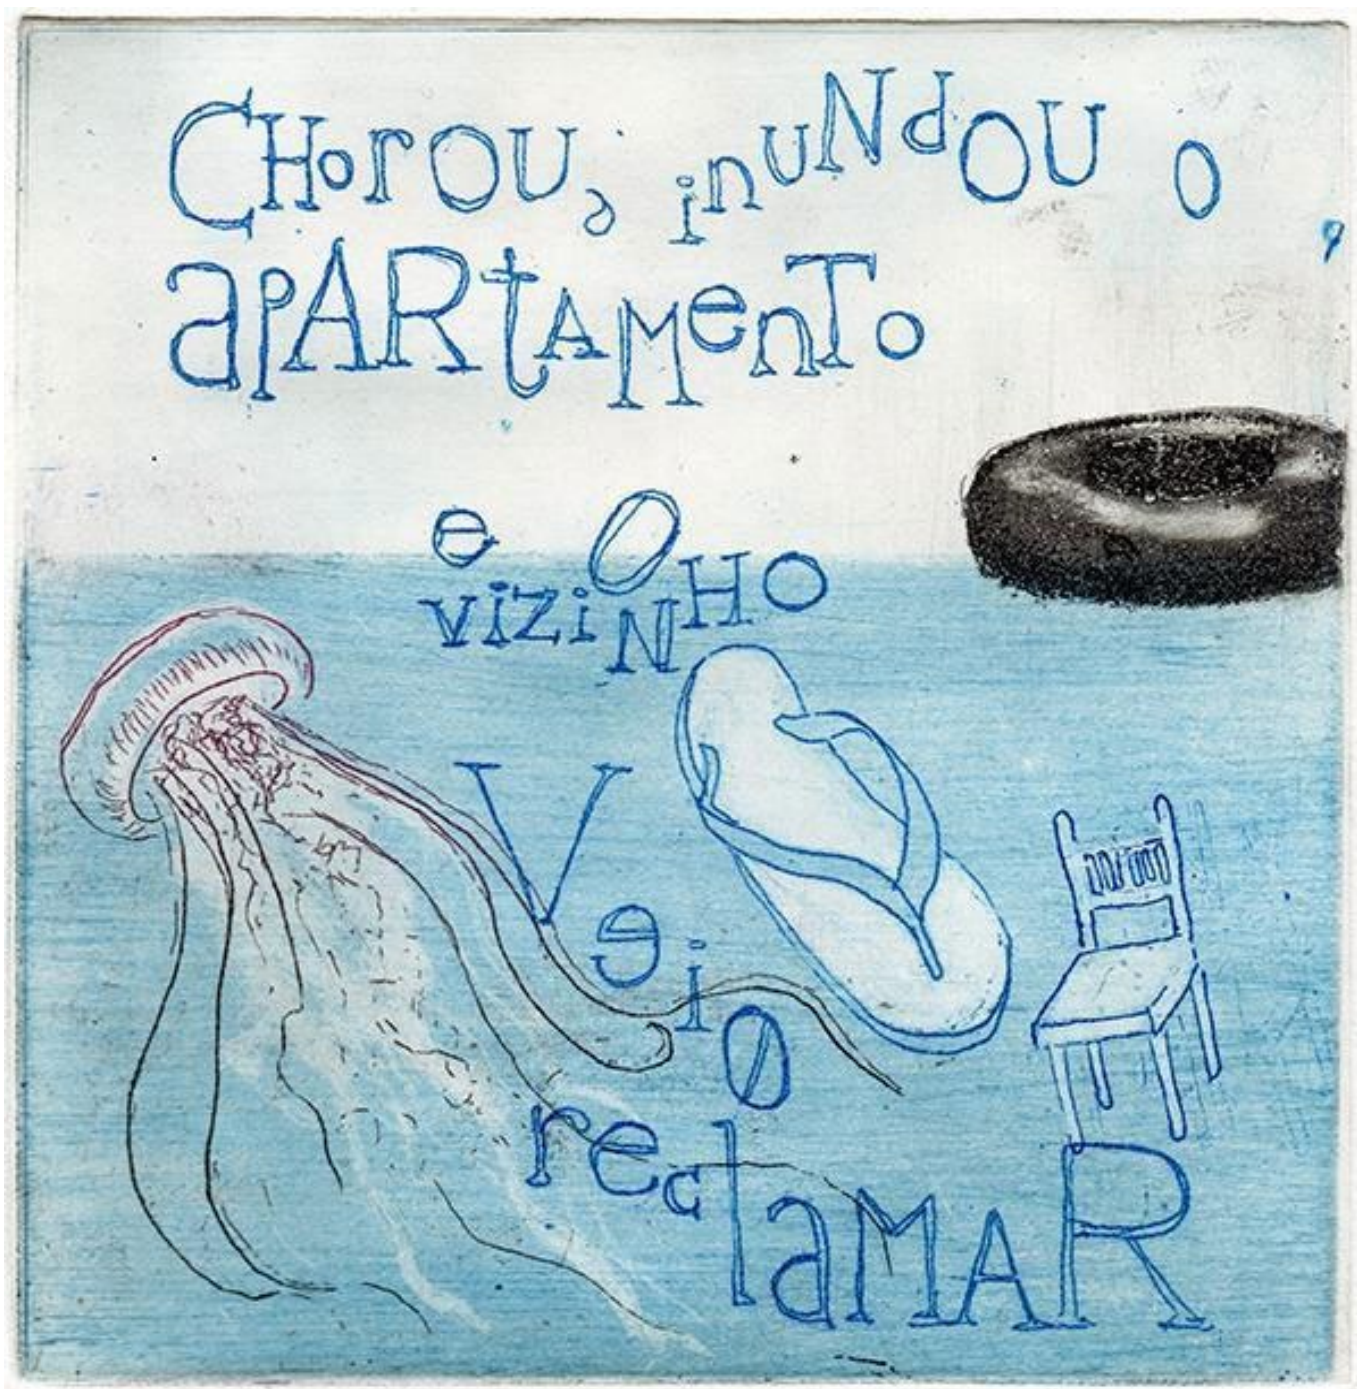 CHorOU, inuNdOU o
apARtAMenTo
e O
viziNHO
Veio
reclaMAR